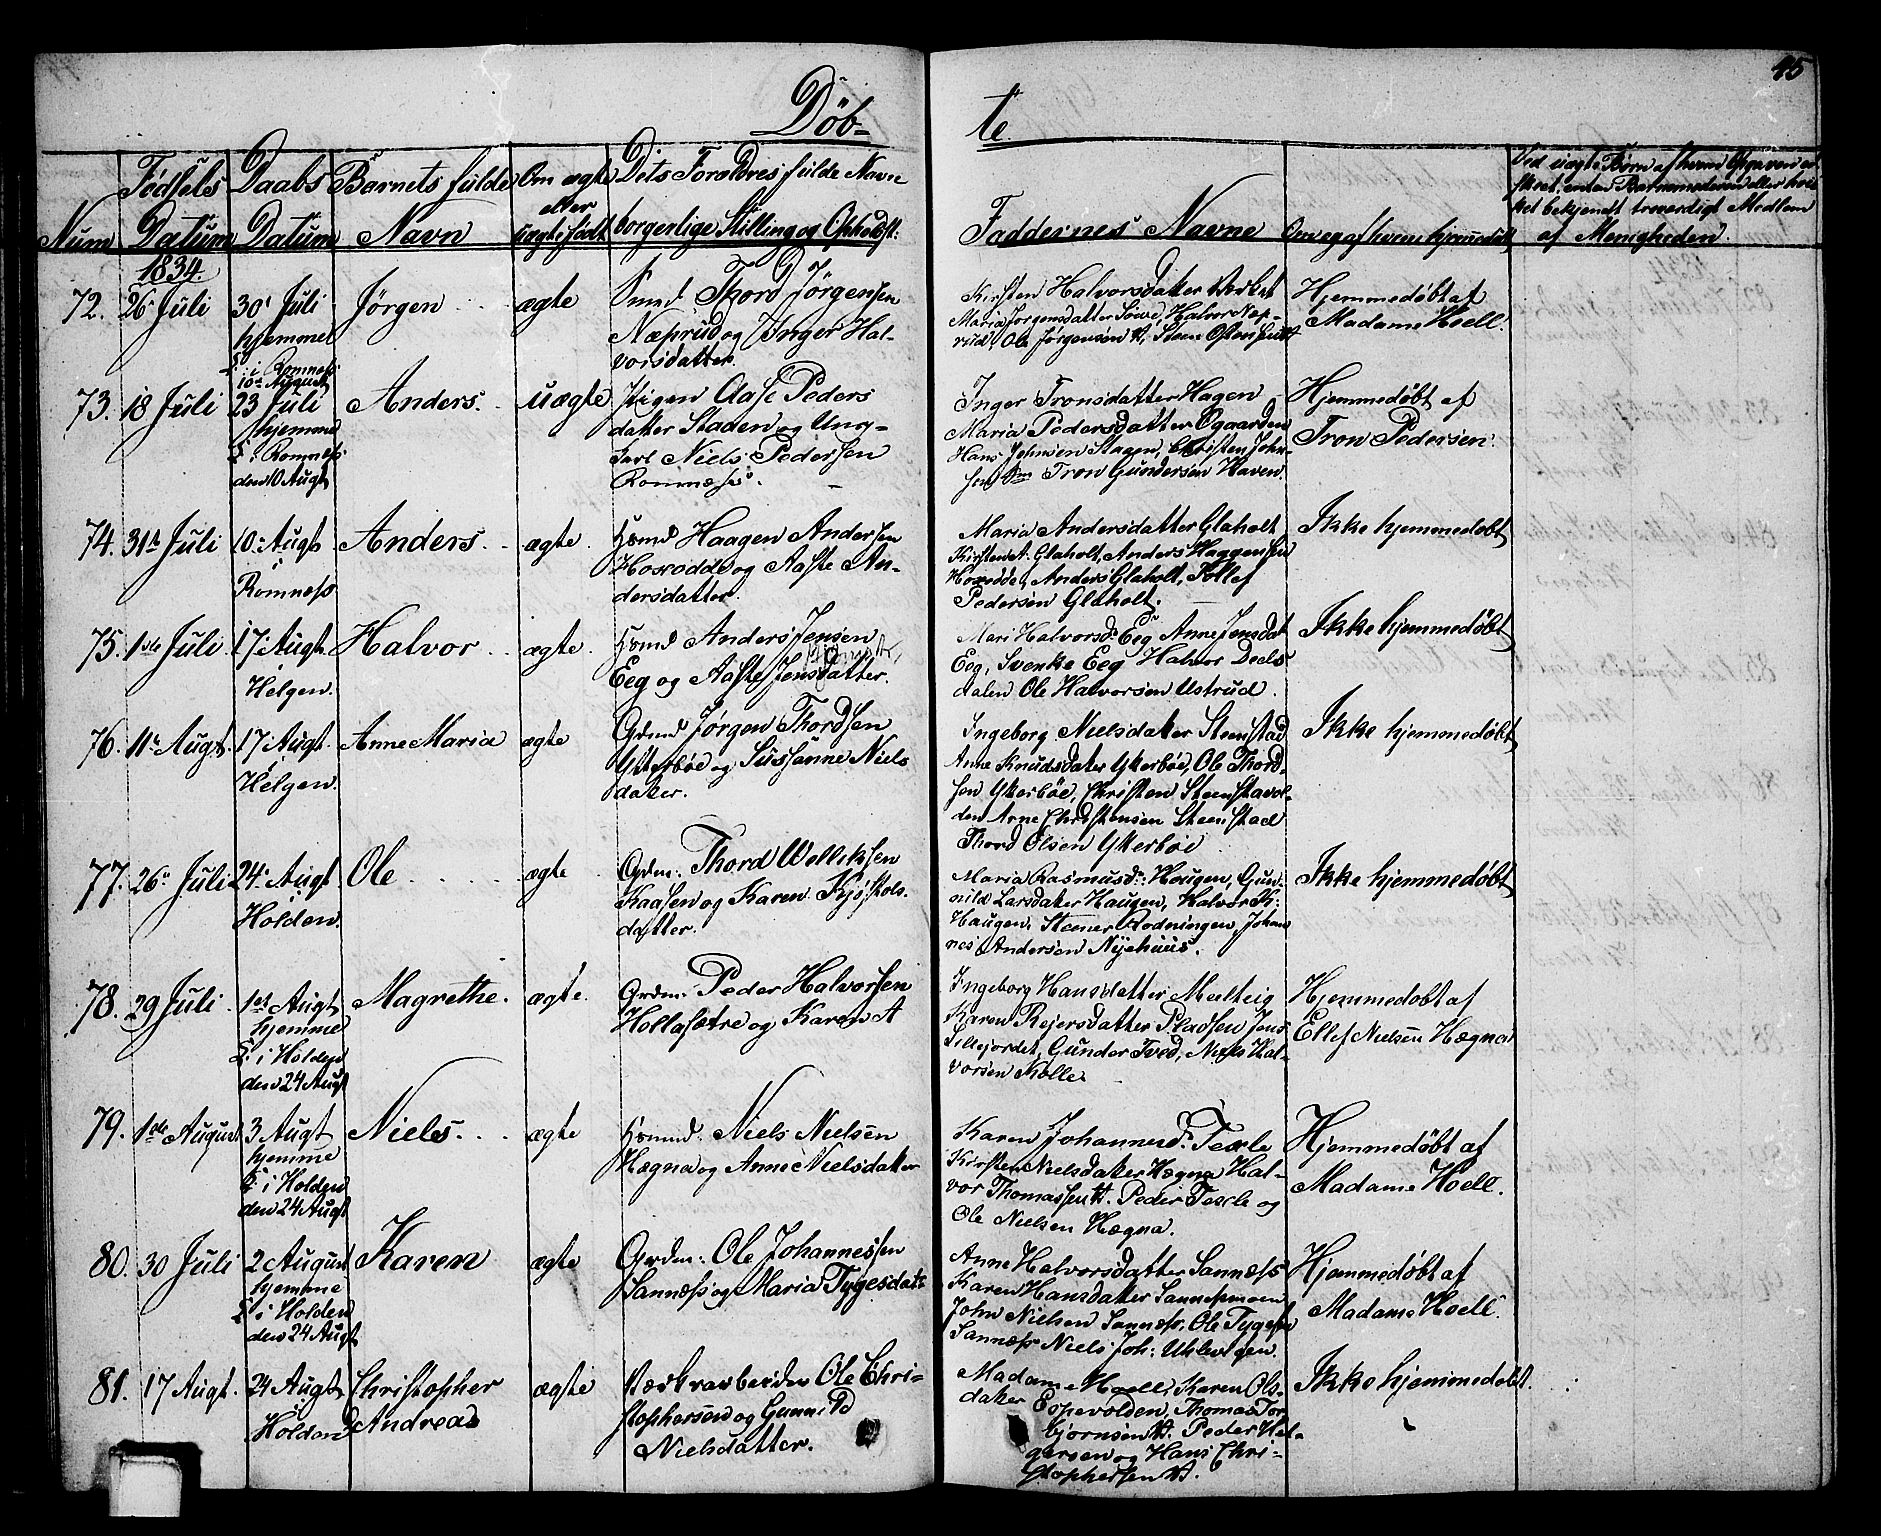 45
Döb-
te.
Num
Födsels Datum
Daabs Datum
Barnets fulde Navn
Om ægte eller uægte født
Dets Forældres fulde Navn
borgerlige Stilling og Opholdst:
Faddernes Navne
Om og af hvem hjemmedöbt
Ved uægte Börn af hvem Opgaven er
skeet, enten Barnemoderen eller hvil
ket bekjendt troværdigt Medlem
af Menigheden.
1834.
72. 26 Juli
30' Juli
hjemme
i Romness
10de August
Jörgen
ægte
Smed Tkord Jörgensen
Næprud og Inger Hal-
vorsdatter.
Kirsten Halvorsdatter Verket
Maria Jorgensdatter Söwe, Halvor Næp-
rud, Ole Jörgensen
Hjemmedöbt af
Madame Hoell.
73. 18 Juli
23 Juli
hjemme
i Romness
den 10 Augt
Anders.
uægte
Pigen Aase Peders
datter Staden og Ung-
karl Niels Pedersen
Romnæss.
Inger Tronsdatter Hagen
Maria Pedersdatter Ogaarden
Hans Johnsen Stagen, Christen John-
sen Tron Gundersen Haven.
Hjemmedöbt af
Tron Pedersen.
74. 31te Juli
10. Augt
i
Romness
Anders.
ægte.
Hsmd Haagen Andersen
Hoxodde og Aaste An-
dersdatter.
Maria Andersdatter Glaholt
Kirsten A. Glaholt, Anders Haagensen
Hoxodde, Anders Glaholt, Tollef
Pedersen Glaholt.
Ikke hjemmedöbt
75. 1ste Juli
17. Augt.
i
Helgen.
Halvor
ægte.
Hsmd Anders Jensen
Eeg og Aaste Jensdatter.
Mari Halvorsd. Eeg Anne Jensdat
Eeg, Svenke Eeg Halvor Deels
dalen Ole Halvorsen Ustrud.
Ikke hjemmedöbt
76. 11te Augt.
17. Augt.
i
Helgen.
Anne Maria
ægte
Grdmd Jörgen Thordsen
Ytterböe og Sussanne Niels
datter.
Ingeborg Nielsdatter Steenstad
Anne Knudsdatter Ytterböe, Ole Thord-
sen Ytterböe, Christen Steenstavol-
den Arne Christensen Steenstad
Thord Olsen Ytterböe
Ikke hjemmedöbt
77. 26. Juli
24. Augt
i
Holden.
Ole
ægte
Grdm: Thord Wetliksen
Kaasen og Karen Kjöstols-
datter.
Maria Rasmusd: Haugen, Gun-
nild Larsdatter Haugen, Halvor K:
Haugen, Steener Rodningen, Johan
nes Andersen Nyehuus.
Ikke hjemmedöbt
78. 29 Juli
1st Augt
hjemme
i Holden
den 24 Augt
Magrethe.
ægte.
Grdm: Peder Halvorsen
Hollasætre og Karen A
Ingeborg Hansdatter Melteig
Karen Rejersdatter Pladsen Jens
Lillejordet, Gunder Tved, Niels Hal-
vorsen Mælle.
Hjemmedobt af
Ellef Nielsen Hægna
79. 1ste August
3 Augt
hjemme
i Holden
den 24 Augt
Niels.
ægte
Hsmd: Niels Nielsen
Hægna og Anne Nielsdatter
Karen Johannesd: Terle
Kirsten Nielsdatter Hægna Hal-
vor Thomassen Peder Terle og
Ole Nielsen Hægna.
Hjemmedöbt af
Madame Hoell.
80. 30 Juli
2 August
hjemme
i Holden
den 24 Augt
Karen
ægte
Grdm: Ole Johannessen
Sannæss og Maria Tygesdatr
Anne Halvorsdatter Sannæss
Karen Hansdatter Sannesmoen
John Nielsen Sannæss, Ole Tygesen
Sannæss Niels Joh: Uhlevigen.
Hjemmedöbt af
Madame Hoell.
81. 17 Augt.
24 Augt
i
Holden
Christopher
Andreas
ægte
Værksarbeider Ole Chri-
stophersen og Gunnild
Nielsdatter.
Madame Hoell, Karen Ols-
datter Eopevolden, Thomas Tor
bjornsen Peder Hal-
gersen og Hans Chri-
stophersen
Ikke hjemmedobt.